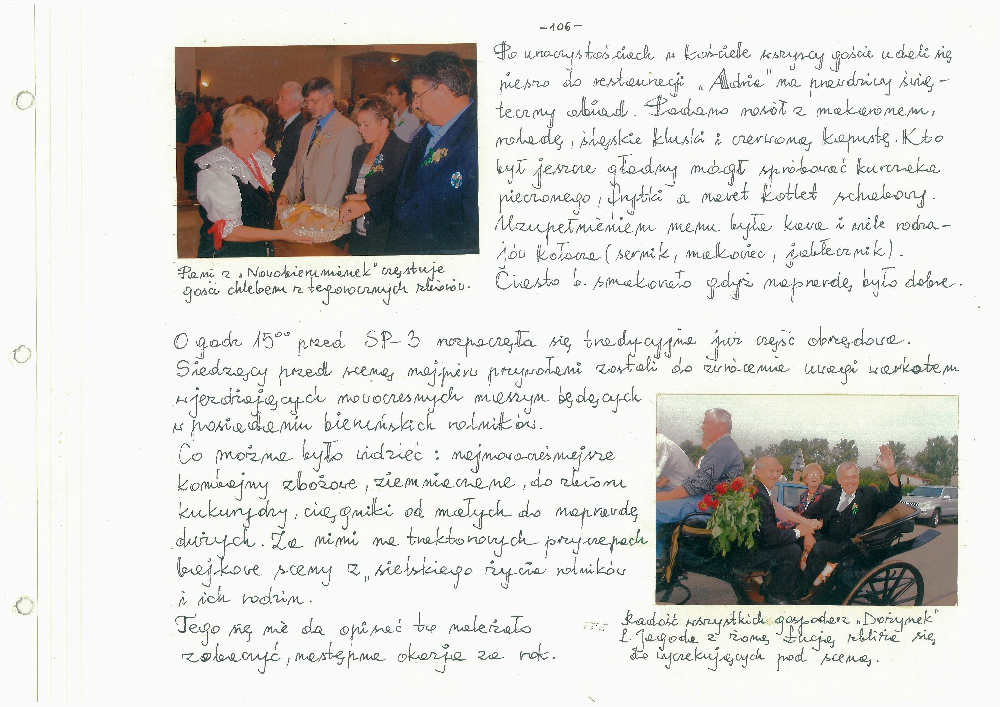 -106-
Po uroczystościach w kościele wszyscy goście udali się
pieszo do restauracji „Adria" na prawdziwy świą-
teczny obiad. Podano rosół z makaronem,
roladę, śląskie kluski i czerwoną kapustę. Kto
był jeszcze głodny mógł spróbować kurczaka
pieczonego, frytki a nawet kotlet schabowy.
Uzupełnieniem menu była kawa i wiele rodza-
jów kołacza (sernik, makowiec, jabłecznik).
Ciasto b. smakowało gdyż naprawdę było dobre.
Pani z „Nowobierunianek" częstuje
gości chlebem z tegorocznych zbiorów.
O godz 15⁰⁰ przed SP-3 rozpoczęła się tradycyjna już część obrzędowa.
Siedzący przed sceną najpierw przywołani zostali do zwrócenia uwagi warkotem
wjeżdżających nowoczesnych maszyn będących
w posiadaniu bieruńskich rolników.
Co można było widzieć: najnowocześniejsze
kombajny zbożowe, ziemniaczane, do zbioru
kukurydzy, ciągniki od małych do naprawdę
dużych. Za nimi na traktorowych przyczepach
bajkowe sceny z „sielskiego życia rolników
i ich rodzin.
Tego się nie da opisać to należało
zobaczyć, następna okazja za rok.
Radość wszystkich gospodarz „Dożynek"
L. Jagoda z żoną Łucją zbliża się
do wyczekujących pod sceną.